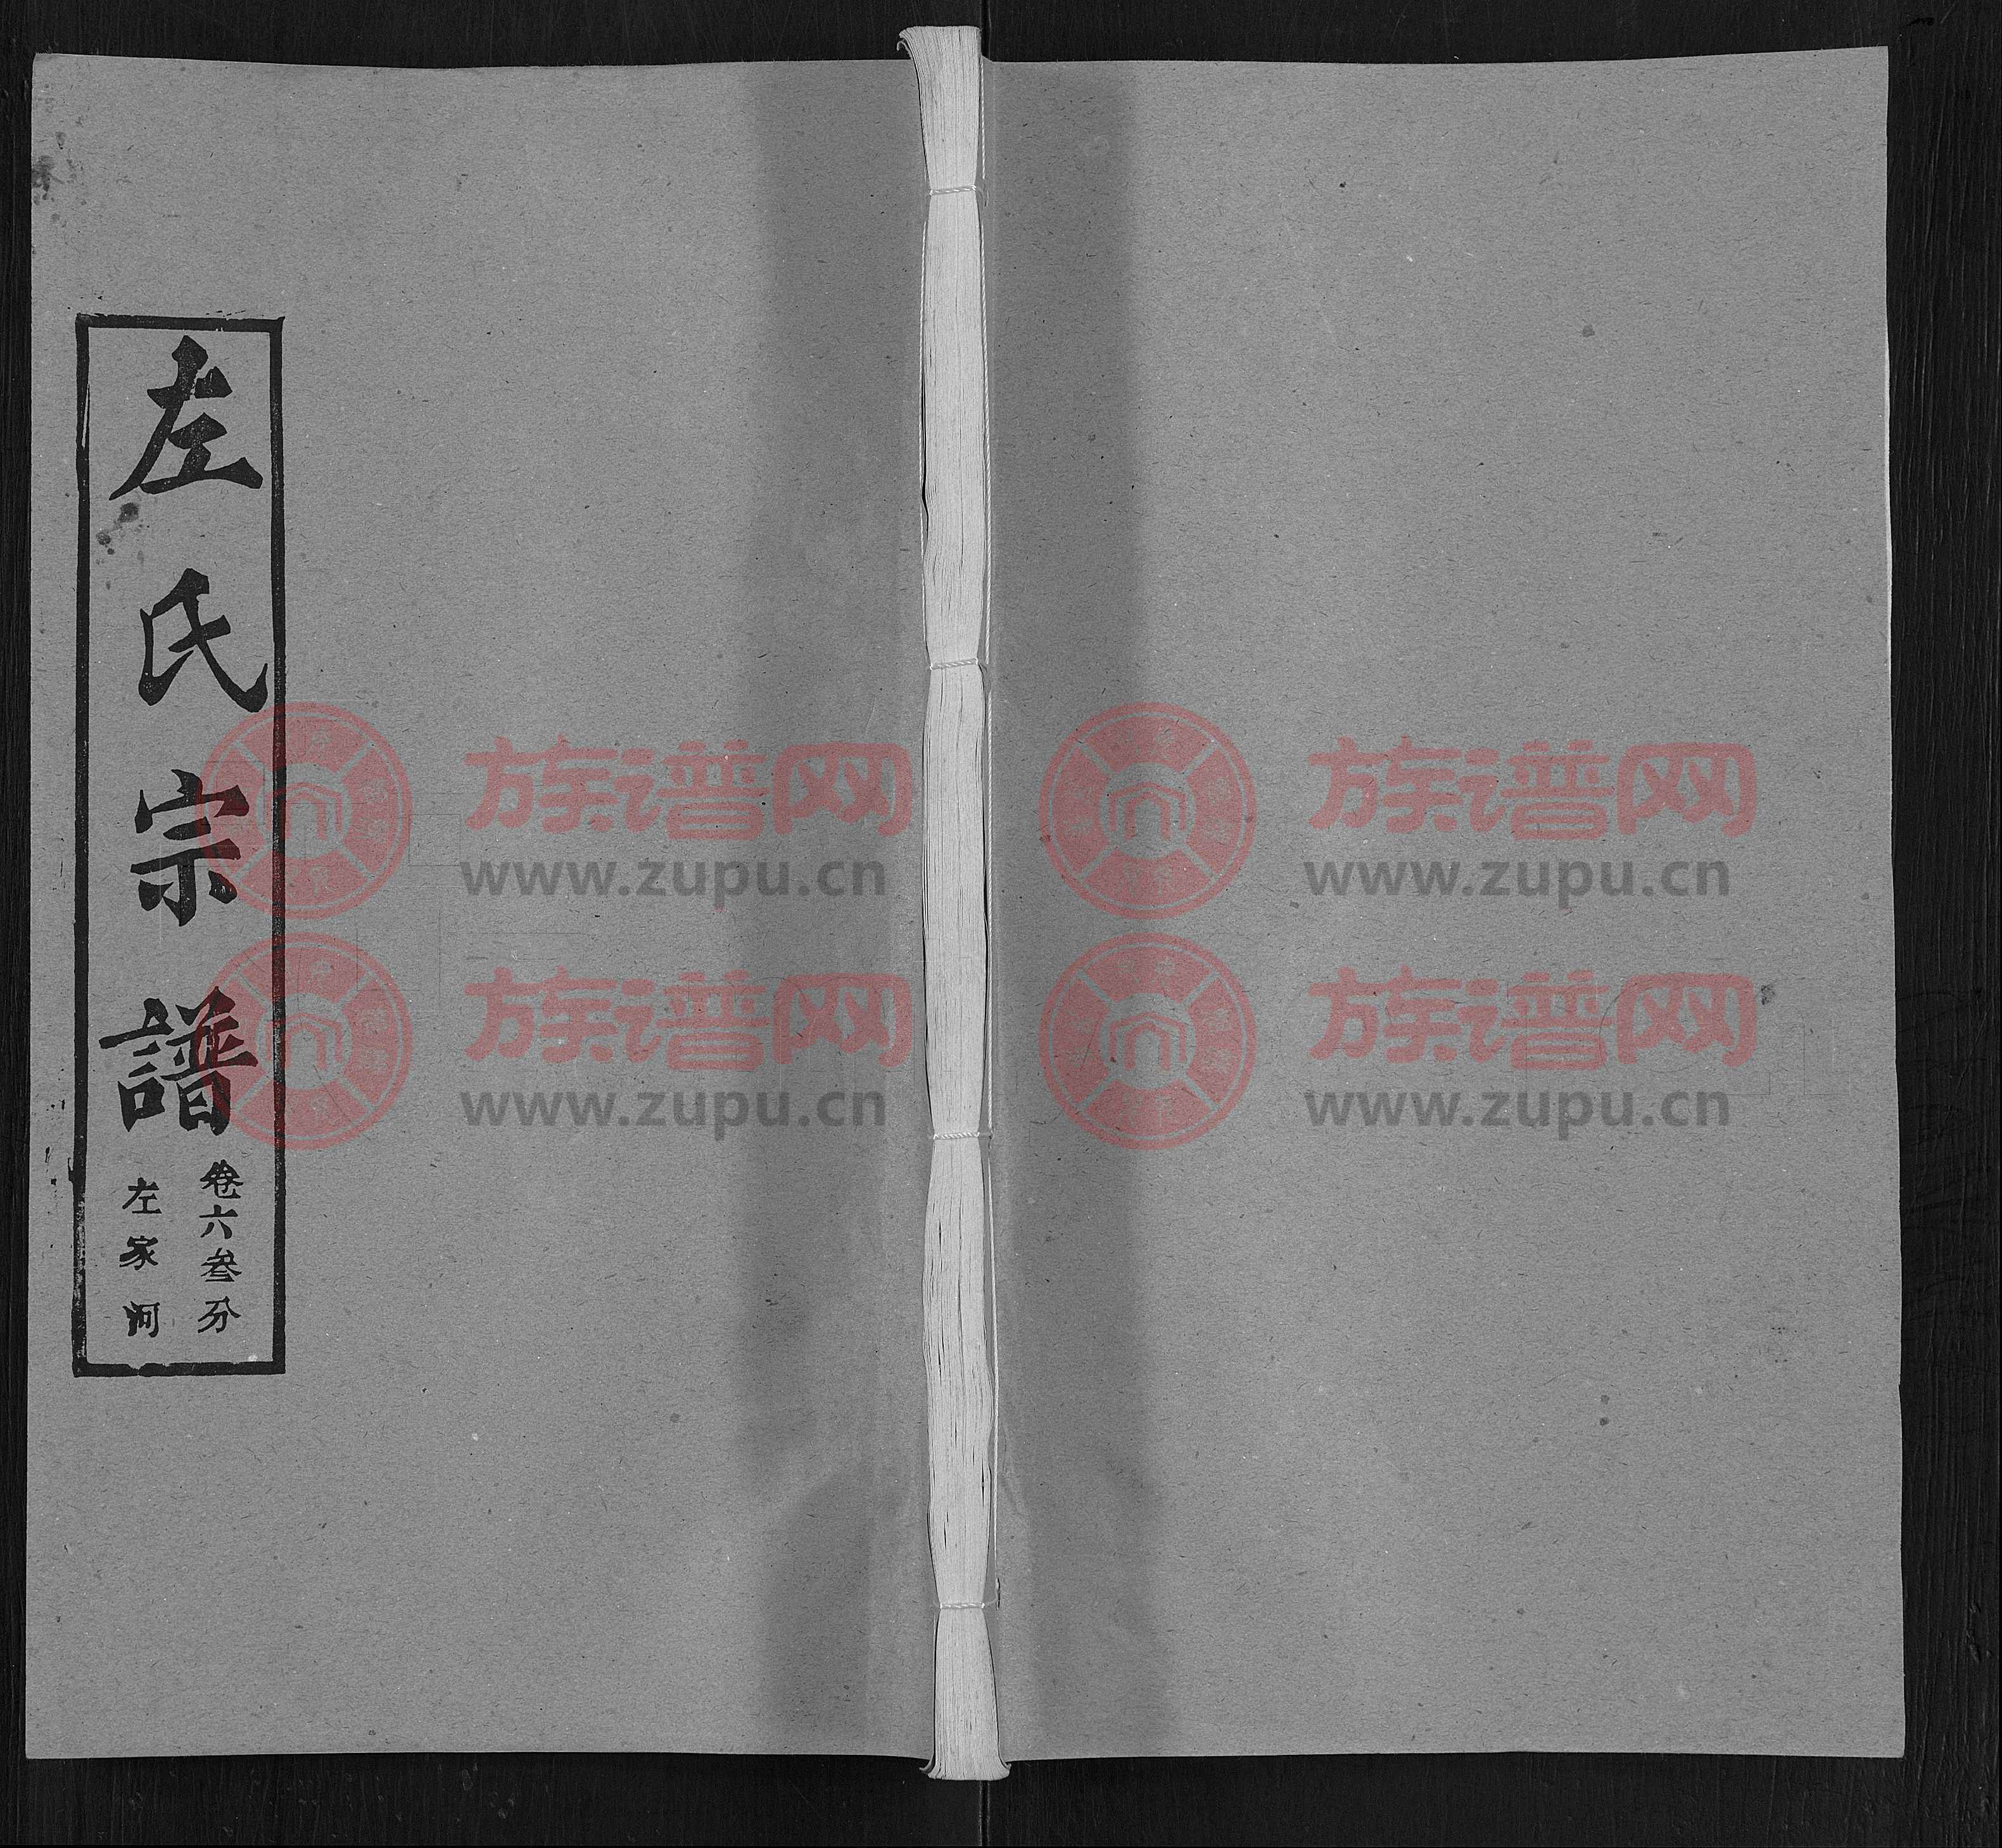 左氏宗譜
卷六叁分
左家河
族谱网
www.zupu.cn
族谱网
www.zupu.cn
族谱网
www.zupu.cn
族谱网
www.zupu.cn